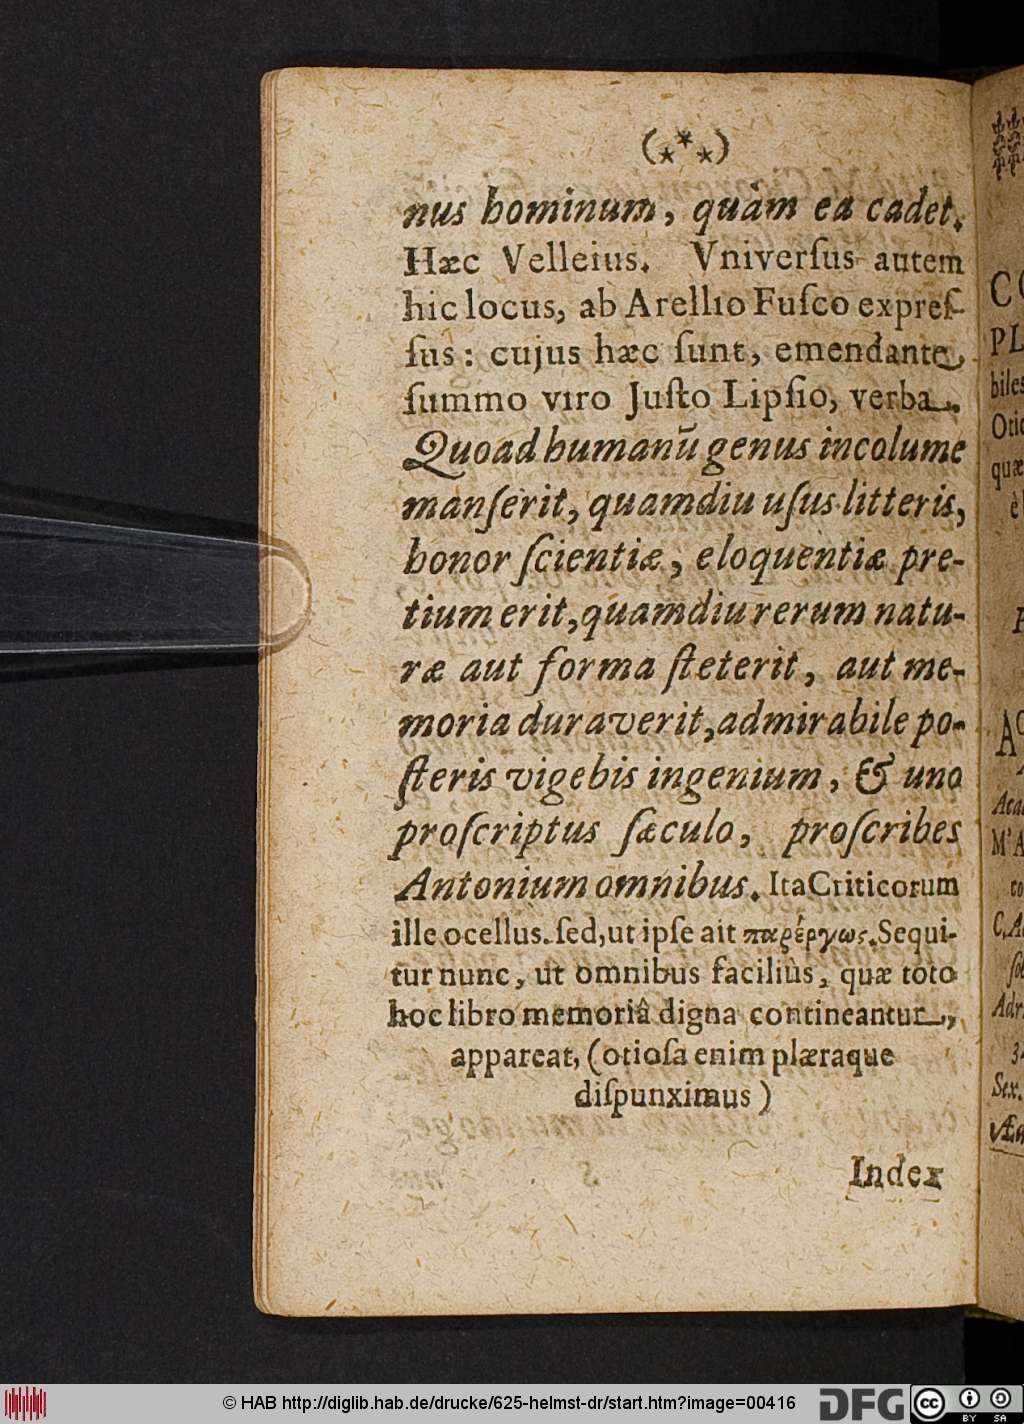 (⁎*⁎)
nus hominum, quàm ea cadet.
Hæc Velleius. Vniverſus autem
hic locus, ab Arellio Fuſco expreſ-
ſus: cujus hæc ſunt, emendante,
ſummo viro Juſto Lipſio, verba.
Quoad humanū genus incolume
manſerit, quamdiu uſus litteris,
honor ſcientiæ, eloquentiæ pre-
tium erit, quamdiu rerum natu-
ræ aut forma ſteterit, aut me-
moria duraverit, admirabile po-
ſteris vigebis ingenium, & uno
proſcriptus ſæculo, proſcribes
Antonium omnibus. Ita Criticorum
ille ocellus. ſed, ut ipſe ait παρέργως. Sequi-
tur nunc, ut omnibus faciliùs, quæ toto
hoc libro memoriâ digna contineantur,
appareat, (otioſa enim plæraque
diſpunximus)
Index
CO
PL
biles
Otic
quæ
è
Acad
M'A
co
C. Ac
ſol
Adr
34
Sex.
© HAB http://diglib.hab.de/drucke/625-helmst-dr/start.htm?image=00416
DFG
cc
BY SA